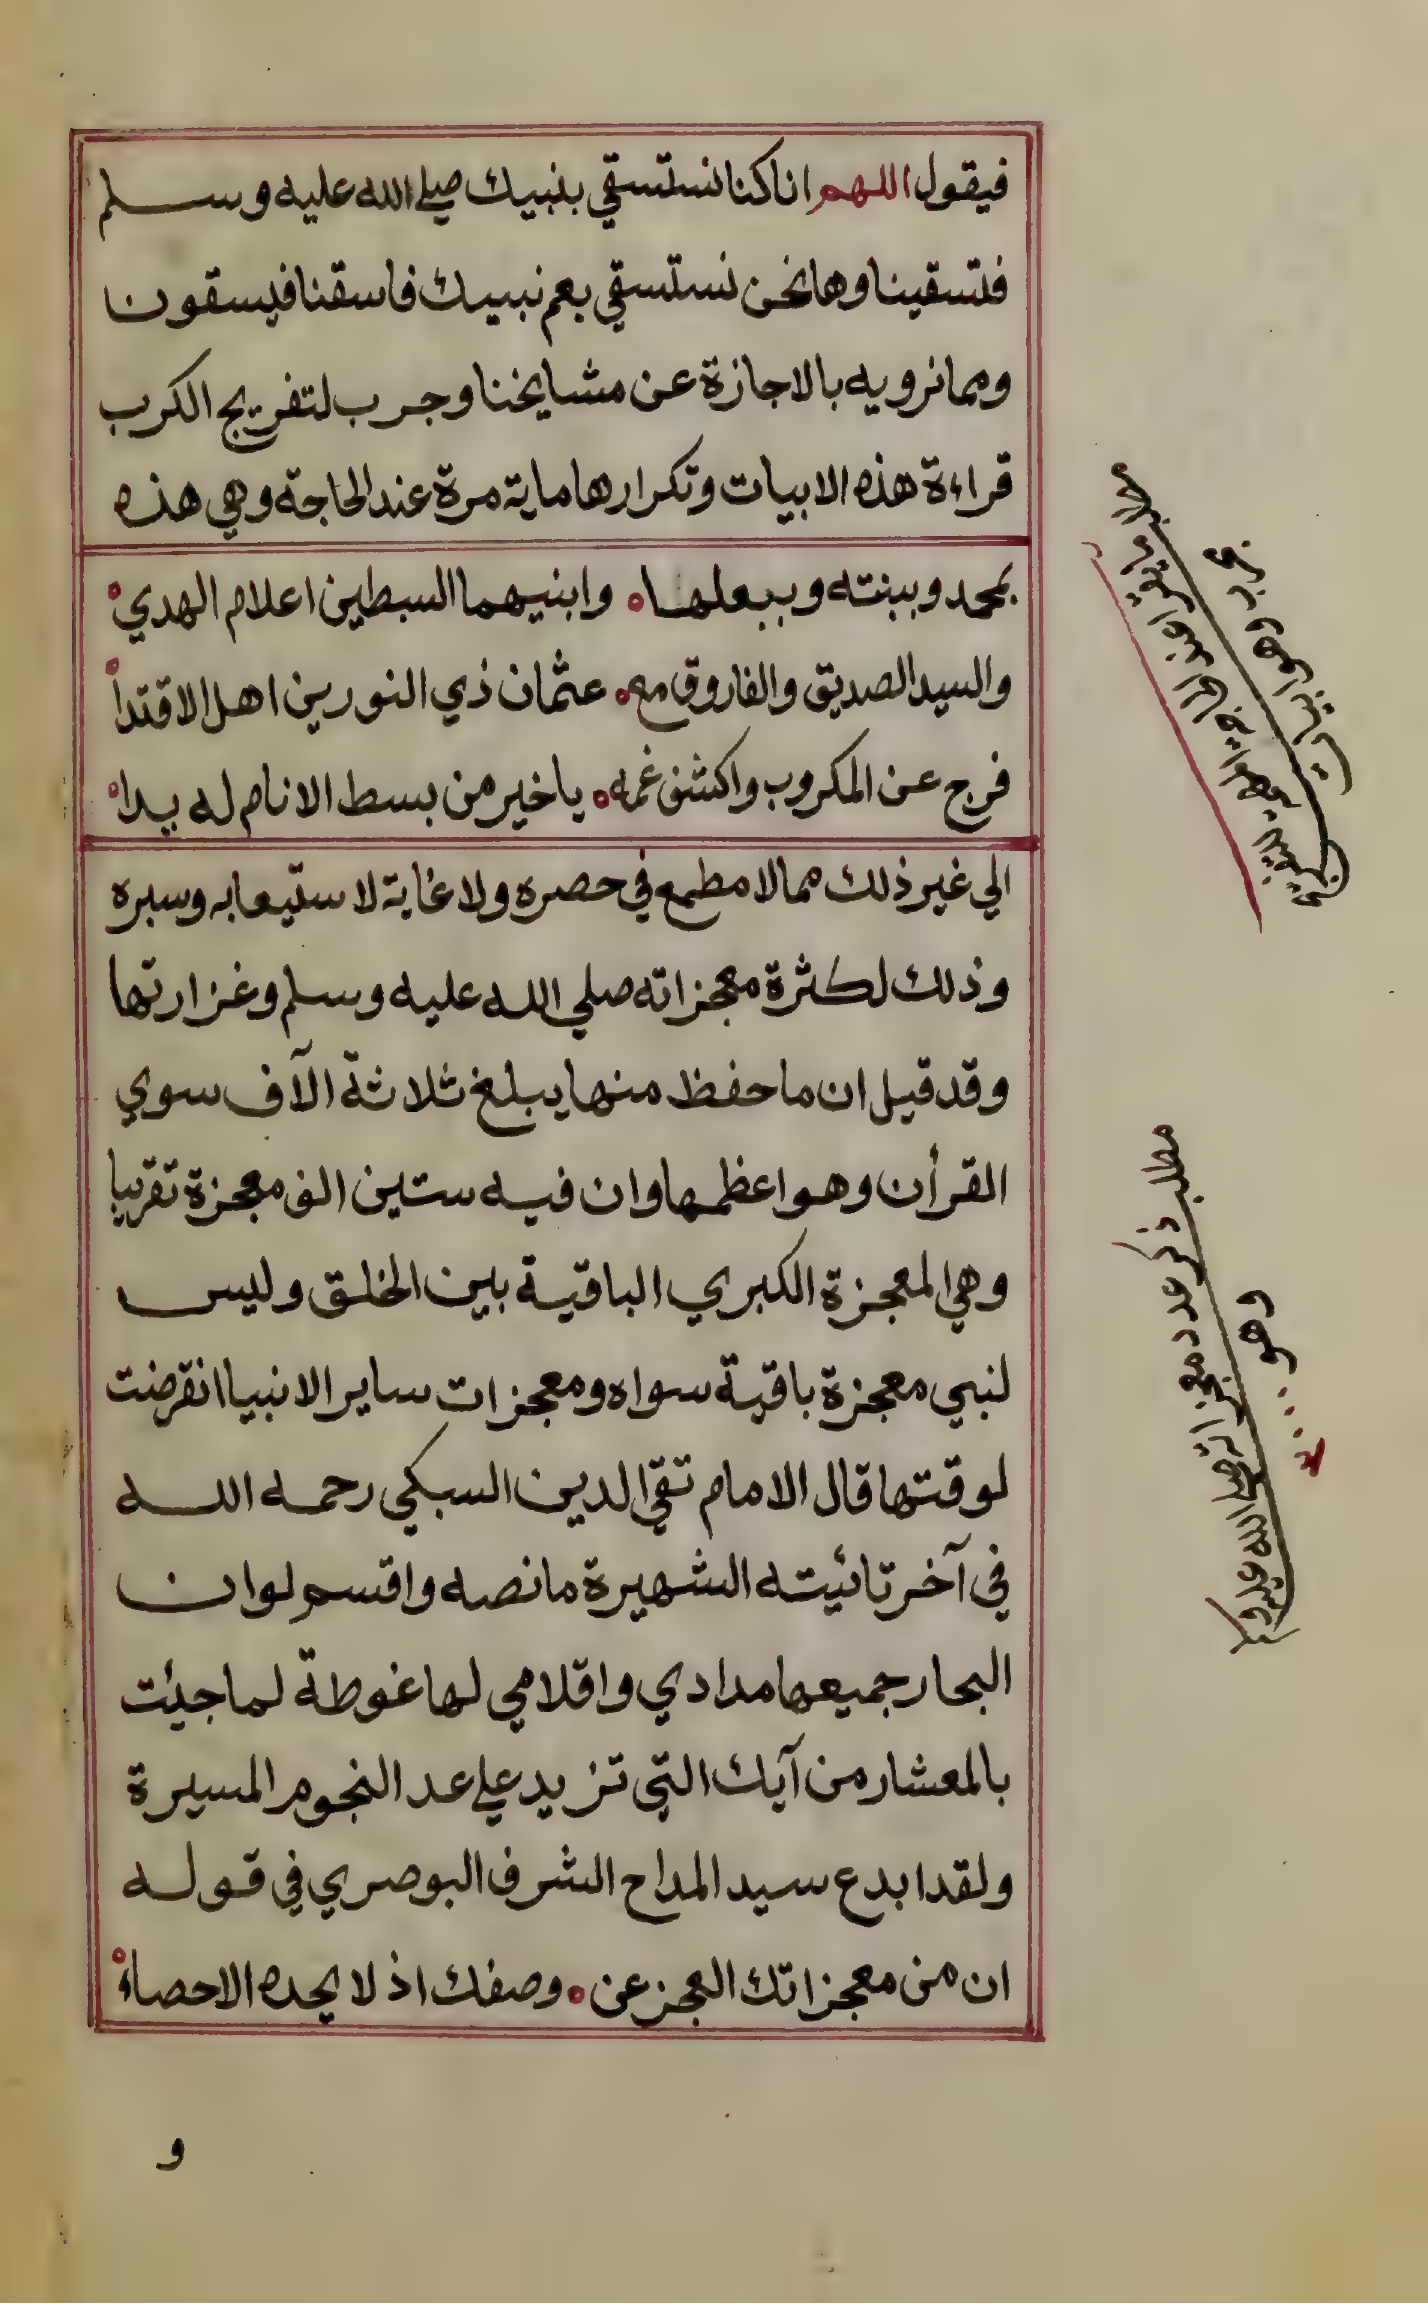 فيقول اللهم انا كنا نستسقي بنبيك صلى الله عليه وسلم
فتسقينا وها نحن نستسقي بعم نبيك فاسقنا فيسقون
ومما نرويه بالاجازة عن مشايخنا وجرب لتفريج الكرب
قراءة هذه الابيات وتكرارها ماية مرة عند الحاجة وهي هذه
بمحمد وببنته وببعلها ٥ وابنيهما السبطين اعلام الهدي ٥
والسيد الصديق والفاروق مع ٥ عثمان ذي النورين اهل الاقتدا ٥
فرج عن المكروب واكشف غمه ٥ يا خير من بسط الانام له يدا ٥
الي غير ذلك مما لا مطمع في حصره ولا غاية لاستيعابه وسبره
وذلك لكثرة معجزاته صلي الله عليه وسلم وغزارتها
وقد قيل ان ما حفظ منها يبلغ ثلاثة آلاف سوي
القرأن وهو اعظمها وان فيه ستين الف معجزة تقريبا
وهي المعجزة الكبري الباقية بين الخلق وليس
لنبي معجزة باقية سواه ومعجزات ساير الانبيا انقرضت
لوقتها قال الامام تقي الدين السبكي رحمه الله
في آخر تائيته الشهيرة ما نصه واقسم لو ان
البحار جميعها مدادي واقلامي لها غوطة لما جيئت
بالمعشار من آيك التي تزيد علي عد النجوم المسيرة
ولقد ابدع سيد المداح الشرف البوصري في قوله
ان من معجزاتك العجز عن ٥ وصفك اذ لا يحده الاحصاء ٥
و
مطلب ما يقرا عند الحاجة
مجرب وهو ابيات
مطلب ذكر عدد معجزاته صلى الله عليه وسلم
وهو